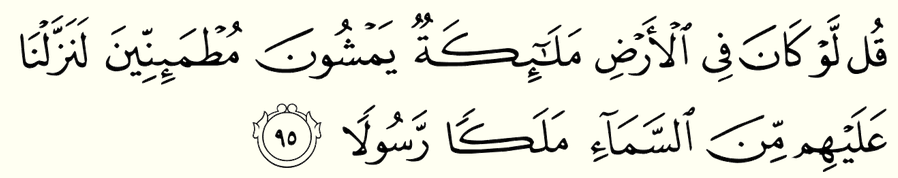 قُل لَّوْ كَانَ فِى ٱلْأَرْضِ مَلَـٰٓئِكَةٌ يَمْشُونَ مُطْمَئِنِّينَ لَنَزَّلْنَا
عَلَيْهِم مِّنَ ٱلسَّمَآءِ مَلَكًا رَّسُولًا ٩٥